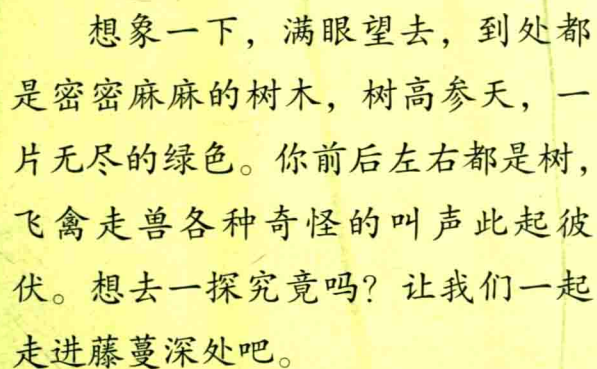 想象一下，满眼望去，到处都
是密密麻麻的树木，树高参天，一
片无尽的绿色。你前后左右都是树，
飞禽走兽各种奇怪的叫声此起彼
伏。想去一探究竟吗？让我们一起
走进藤蔓深处吧。